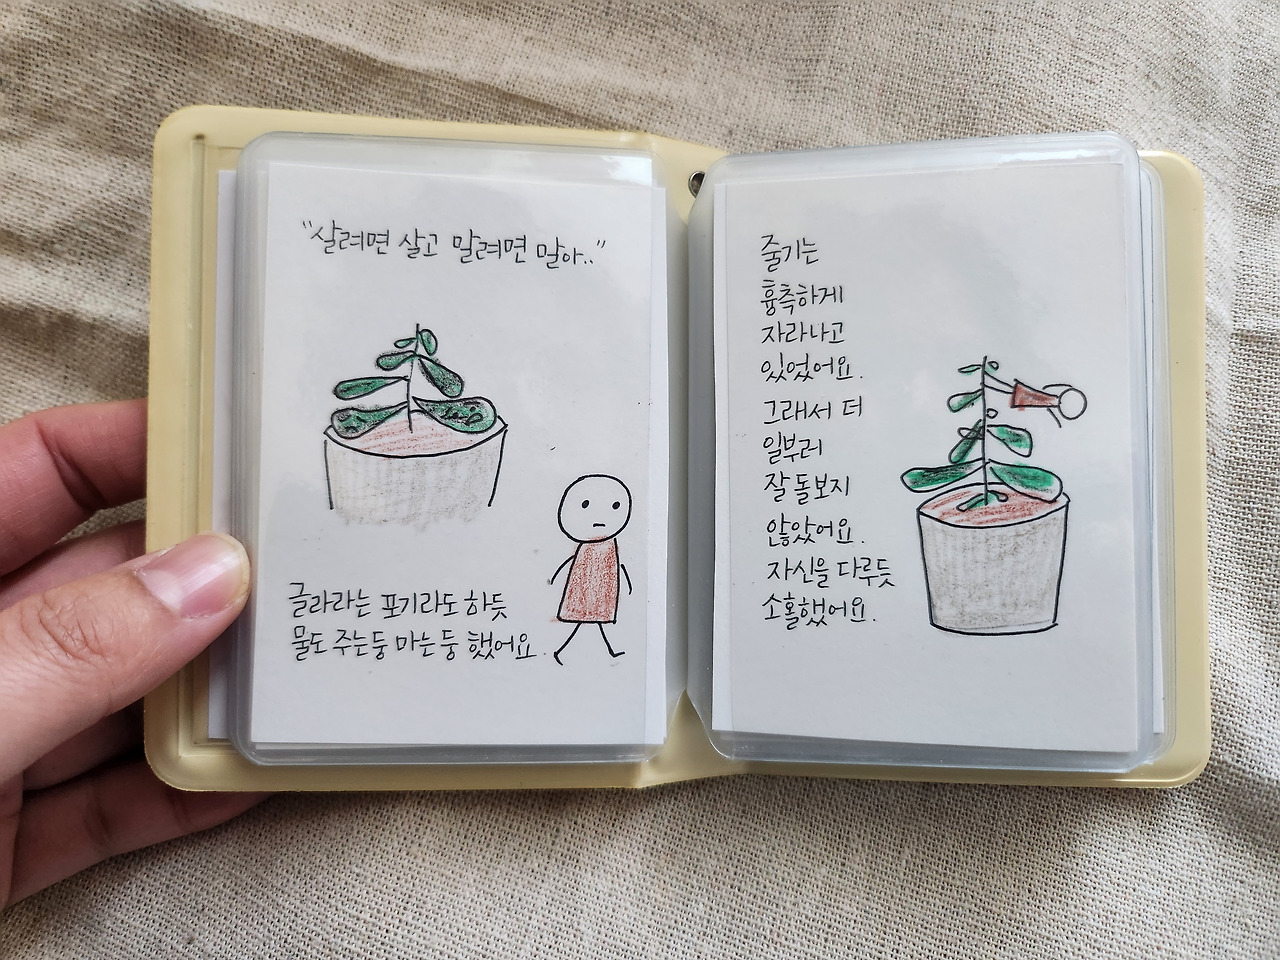 "살려면 살고 말려면 말아.."
글라라는 포기라도 하듯
물도 주는둥 마는둥 했어요.
줄기는
흉측하게
자라나고
있었어요.
그래서 더
일부러
잘 돌보지
않았어요.
자신을 다루듯
소홀했어요.